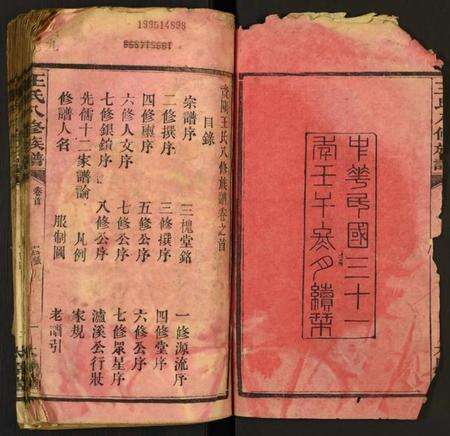 中華民國三十一
年壬午冬月續栞
陽王氏八修族譜卷之首
目錄
宗譜序 三槐堂銘 一修源流序
二修撰序 三修撰序 四修堂序
四修序 五修公序 六修公序
六修人文序 七修公序 七修眾星序
七修銀鎖序 八修公序 瀘溪公行狀
先儒十二家譜論 凡例 家規
修譜人名 服制圖 老譜引
王氏八修族譜 卷首